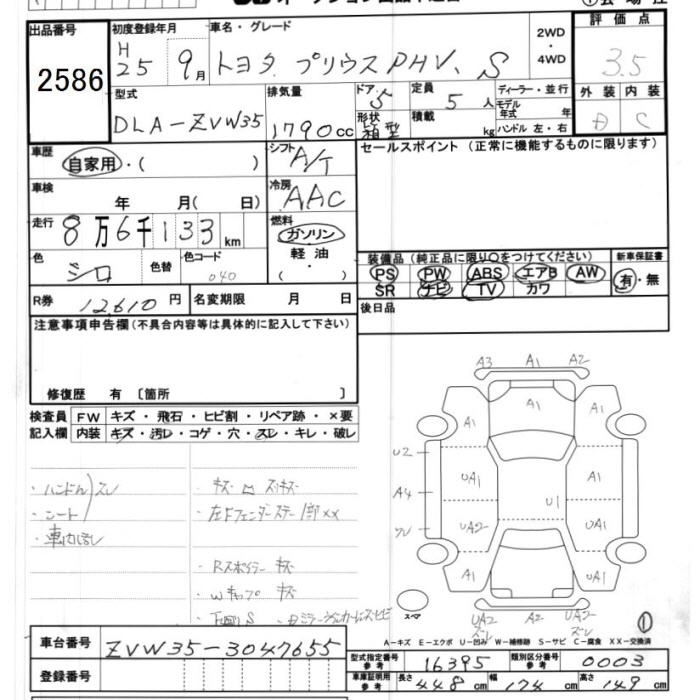 出品番号
2586
初度登録年月
H 25 9月
車名・グレード
トヨタ プリウスPHV、S
2WD
・
4WD
評価点
3.5
型式
DLA-ZVW35
排気量
1790cc
ドア
5
形状
箱型
定員
5人
積載
kg
ディーラー・並行
モデル年式 年
ハンドル 左・右
外装 内装
B C
車歴
自家用・( )
シフト
A/T
セールスポイント(正常に機能するものに限ります)
車検
年 月( 日)
冷房
AAC
走行
8万6千133km
燃料
ガソリン
軽油
・( )
色
シロ
色替
色コード
040
装備品(純正品に限り○をつけてください)
PS PW ABS エアB AW
SR ナビ TV カワ
新車保証書
有・無
R券 12,610円
名変期限 月 日
後日品
注意事項申告欄(不具合内容等は具体的に記入して下さい)
修復歴 有〔箇所 〕
検査員記入欄
FW キズ・飛石・ヒビ割・リペア跡・×要
内装 キズ・汚レ・コゲ・穴・スレ・キレ・破レ
・ハンドルスレ
・シート
・キズ 凹 スリキズ
・左Fフェンダーステー1部××
・Rスポイラー キズ
・Wキャップ キズ
・下廻りS
A3 A1 A2
A1
A1 A1
U2
UA1 A1
A4
U1
UA2 UA1
スレ
A1 UA1
スペア
UA2 スレ
A2
UA2 スレ
①
A-キズ E-エクボ U-凹み W-補修跡 S-サビ C-腐食 XX-交換済
車台番号
ZVW35-3047655
登録番号
型式指定番号 参考
16395
類別区分番号 参考
0003
車庫証明用 参考
長さ 448cm
幅 174cm
高さ 149cm